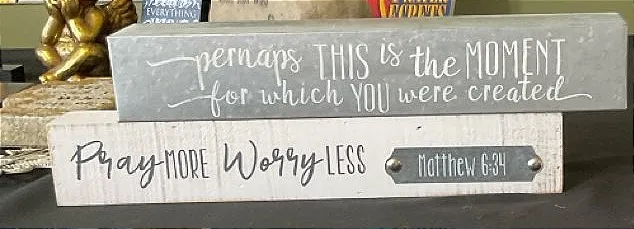 EVERYTHING
SECRETS
perhaps THIS is the MOMENT
for which YOU were created
Pray MORE Worry LESS
Matthew 6:34